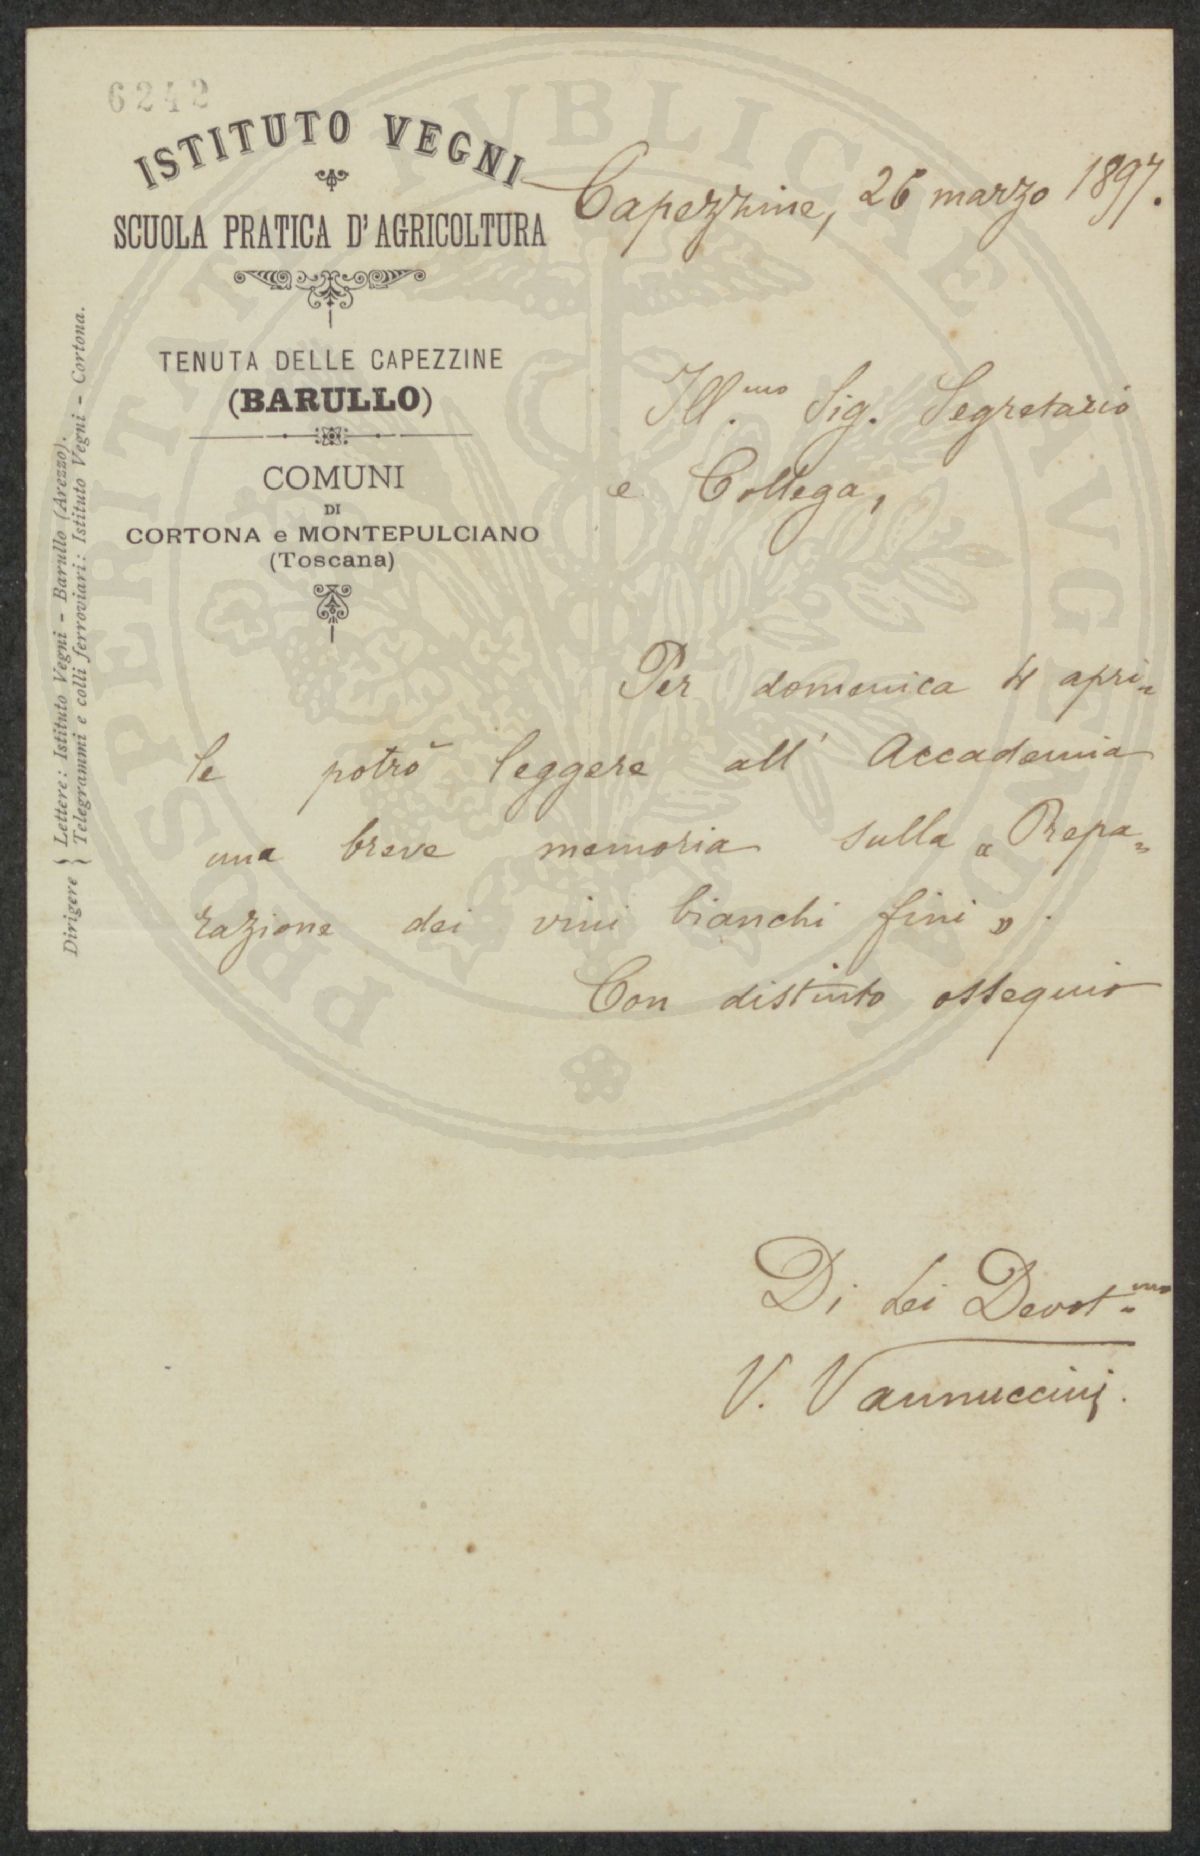 6242
ISTITUTO VEGNI
SCUOLA PRATICA D'AGRICOLTURA
TENUTA DELLE CAPEZZINE
(BARULLO)
COMUNI
DI
CORTONA e MONTEPULCIANO
(Toscana)
Dirigere { Lettere: Istituto Vegni - Barullo (Arezzo).
Telegrammi e colli ferroviari: Istituto Vegni - Cortona.
Capezzine, 26 marzo 1897.
Ill.mo Sig. Segretario
e Collega,
Per domenica 4 apri=
le potrò leggere all' Accademia
una breve memoria sulla „Prepa=
razione dei vini bianchi fini".
Con distinto ossequio
Di Lei Devot.mo
V. Vannuccini.
PROSPERITATI PVBLICAE AVGENDAE